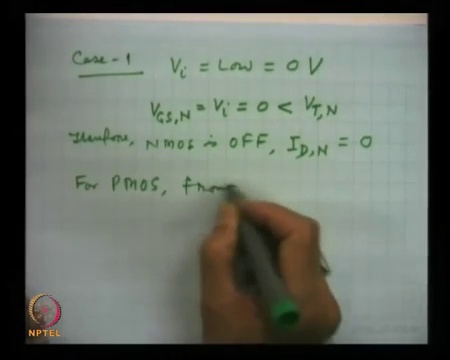 Case-1 Vi = Low = 0 V
VGS,N = Vi = 0 < VT,N
Therefore, NMOS is OFF, ID,N = 0
For PMOS, from
NPTEL